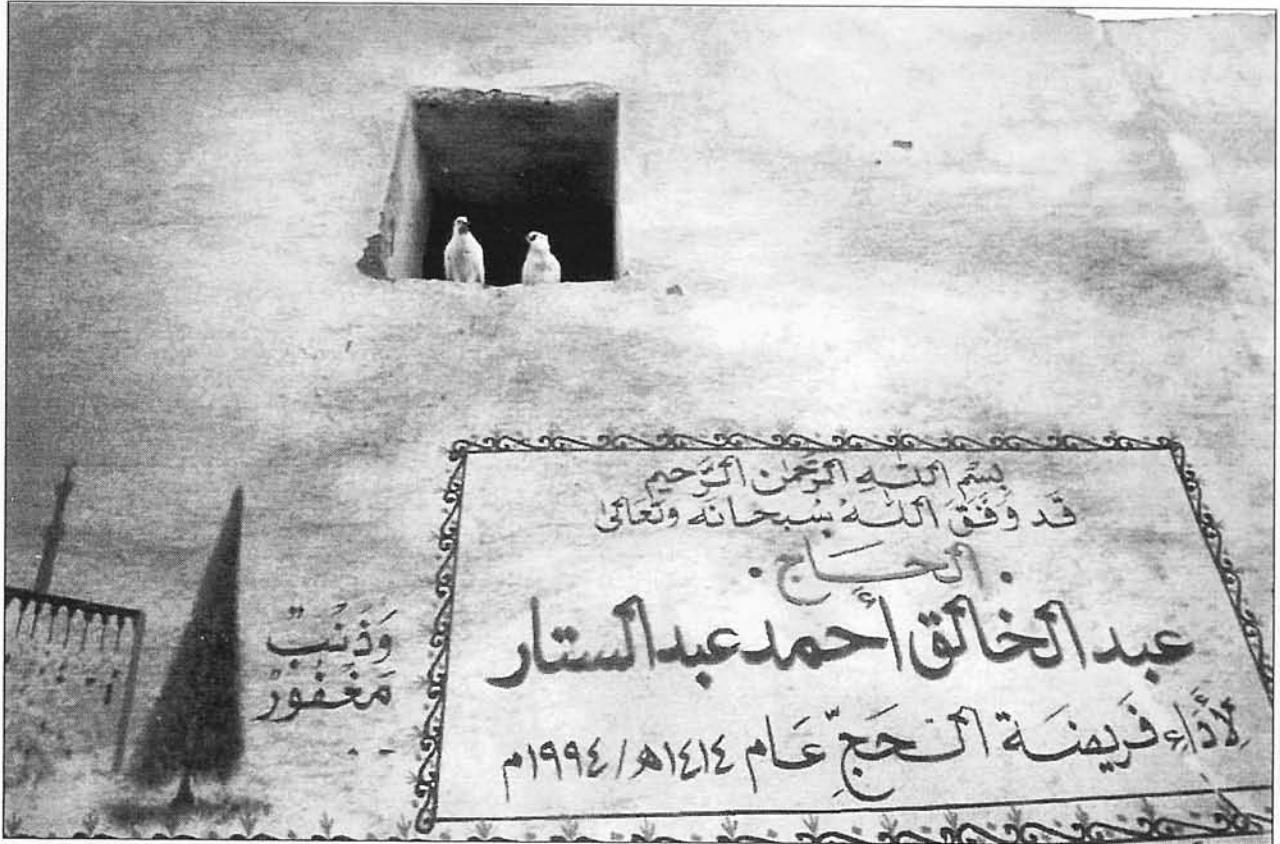 بِسْمِ اللهِ الرَّحْمٰنِ الرَّحِيمِ
قَد وَفَّقَ اللهُ سُبحَانَه وَتَعَالىٰ
الحَاج
عبد الخالق أحمد عبد الستار
لِأَدَاءِ فَرِيضَة الحَجِّ عَام ١٤١٤هـ/١٩٩٤م
وَذَنْبٌ
مَغْفُورٌ